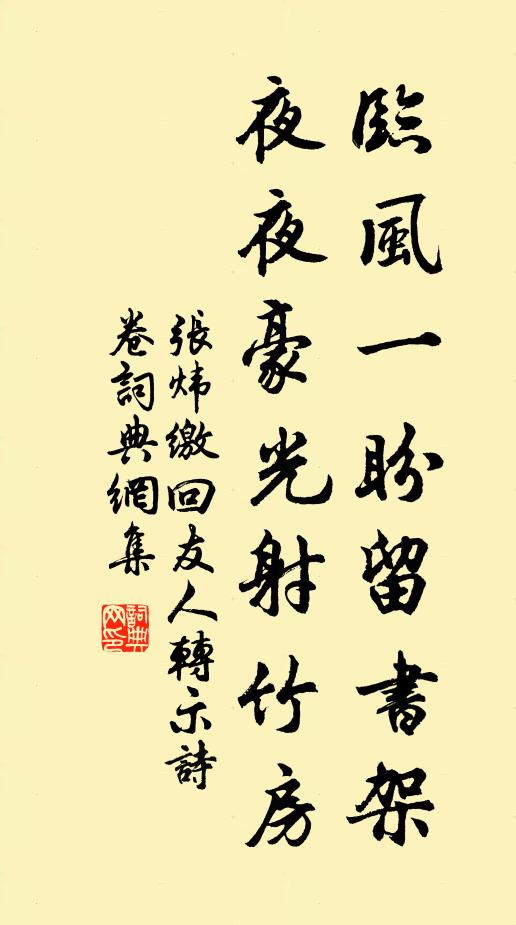 臨風一盼留書架
夜夜豪光射竹房
張煒繳回友人轉示詩
卷詞典網集
詞典網印